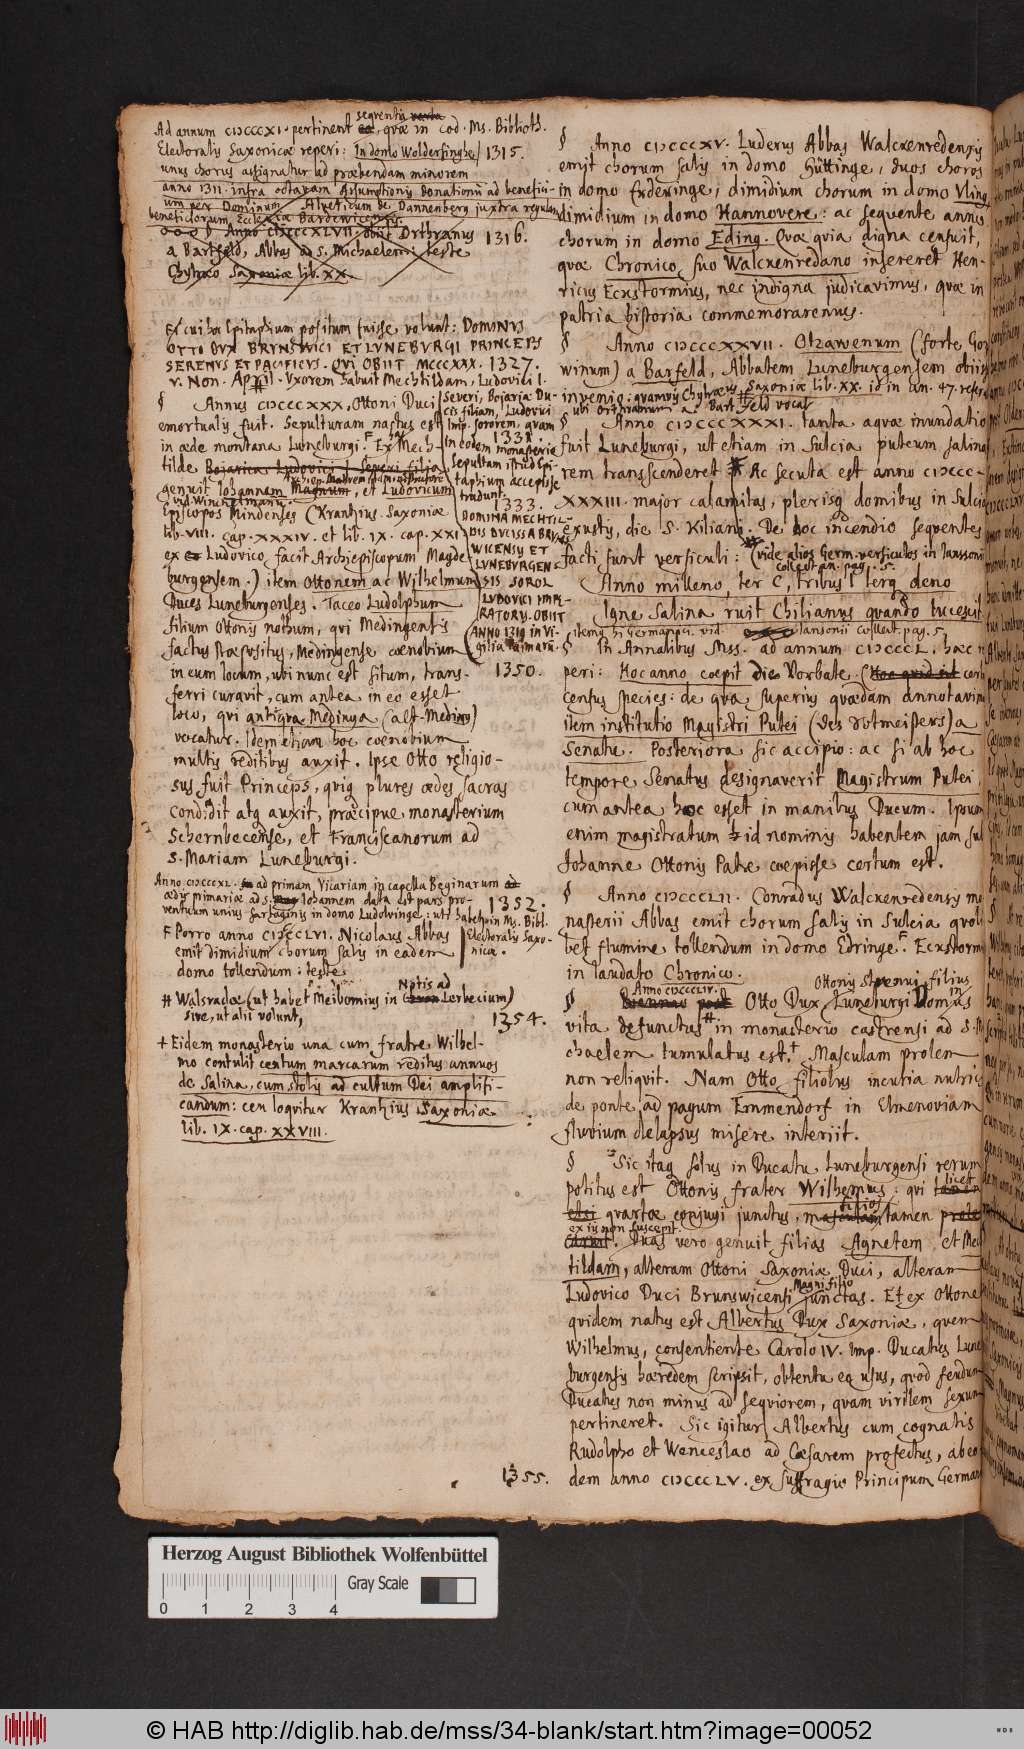 Ad annum CIƆCCCXI. pertinent seqventia, qvæ in cod. Ms. Biblioth.
Electoralis Saxonicæ reperi: In domo Woldersinghe
unus chorus assignatur ad præbendam minorem
anno 1311. infra octavam Assumptionis Donationis ad benefici-
um per Dominum Alvericum de Dannenberg juxta regulam
beneficiorum Ecclesiæ Bardewicensis.
Anno CIƆCCCXLVII. obiit Orthranus
a Bartfeld, Abbas ad S. Michaelem: teste
Chytræo Saxoniæ lib. XX.
1315.
1316.
Et cui hoc Epitaphium positum fuisse volunt: DOMINUS
OTTO DUX BRUNSWICI ET LUNEBURGI PRINCEPS
SERENUS ET PACIFICUS. QVI OBIIT MCCCXXX.
V. Non. April. Uxorem habuit Mechtildam, Ludovici I.
1327.
§ Annus CIƆCCCXXX, Ottoni Duci
emortualis fuit. Sepulturam nactus est
in æde montana Luneburgi. Ex Mech-
tilde Bojarica, Ludovici I. Severi filia
genuit Johannem Magnum, et Ludovicum
vid. Winckelmann.
Episcopos Mindenses (Krantzius Saxoniæ
lib. VIII. cap. XXXIV. et lib. IX. cap. XXI.
ex Ludovico facit Archiepiscopum Magde
burgensem.) item Ottonem ac Wilhelmum
Duces Luneburgenses. Taceo Ludolphum
filium Ottonis nothum, qvi Medingensis
factus Præpositus, Medingense cœnobium
in eum locum, ubi nunc est situm, trans-
ferri curavit, cum antea in eo esset
loco, qvi antiqva Medinga (alt-Meding)
vocatur. Idem etiam hoc cœnobium
multis reditibus auxit. Ipse Otto religio-
sus fuit Princeps, qviq plures ædes sacras
condidit atq auxit, præcipue monasterium
Schernbecense, et Franciscanorum ad
S. Mariam Luneburgi.
Severi, Bojariæ Du-
cis filiam, Ludovici
Imp. sororem, qvam
in eodem monasterio
sepultam istud Epi-
taphium accepisse
tradunt.
DOMINA MECHTIL-
DIS DUCISSA BRUNS
WICENSY ET
LUNEBURGEN-
SIS SOROR
LUDOVICI IMPE-
RATORY. OBIIT
ANNO 1319 in Vi-
gilia
1331.
1333.
1350.
Anno CIƆCCCXL. ad primam Vicariam in capella Beginarum
ædis primariæ ad S. Johannem data est pars pro-
ventuum unius sartaginis in domo Ludolvinge: uti habetur in Ms. Bibl.
Electoralis Saxo-
nicæ.
1352.
F Porro anno CIƆCCCLVI. Nicolaus Abbas
emit dimidium chorum salis in eadem
domo tollendum: teste
# Walsradæ (ut habet Meibomius in Notis ad Lerbecium)
sive, ut alii volunt,
1354.
+ Eidem monasterio una cum fratre Wilhel-
mo contulit centum marcarum reditus annuos
de Salina, cum stolis ad cultum Dei amplifi-
candum: ceu loqvitur Krantzius Saxoniæ
lib. IX. cap. XXVIII.
1355.
§ Anno CIƆCCCXV. Luderus Abbas Walckenredensis
emit chorum salis in domo Hüttinge, duos choros
in domo Erderinge, dimidium chorum in domo Uling
dimidium in domo Hannovere: ac seqvente anno
chorum in domo Eding. Qvæ qvia digna censuit,
qvæ Chronico suo Walckenredano insereret Hen-
ricus Eckstormius, nec indigna judicavimus, qvæ in
patria historia commemoraremus.
§ Anno CIƆCCCXXVII. Otrawenum (forte Gor
winum) a Barfeld, Abbatem Luneburgensem obiisse
invenio: qvamvis Chytræus Saxoniæ lib. XX. id in an. 47. refert
ubi Orthranum a Bartfeld vocat
§ Anno CIƆCCCXXXI. tanta aqvæ inundatio
fuit Luneburgi, ut etiam in Sulcia puteum salina
rem transscenderet. Ac secuta est anno CIƆCCC-
XXXIII. major calamitas, plerisq domibus in Sulcia
exustis, die S. Kiliani. De hoc incendio seqventes
facti sunt versiculi: (vide alios Germ. versiculos in Janssonii
collectan. pag. 5.
Anno milleno, ter C, tribus I terq deno
Igne Salina ruit Chilianus qvando lucescit
item hi Germanici. vid. Jansonii Collect. pag. 5.
§ In Annalibus Mss. ad annum CIƆCCCL. hæc re
peri: Hoc anno coepit die Vorbate. (
census species: de qva superius qvædam annotavimus
item institutio Magistri Putei (des Sotmeisters) a
Senatu. Posteriora sic accipio: ac si ab hoc
tempore Senatus designaverit Magistrum Putei
cum antea hoc esset in manibus Ducum. Ipsum
enim magistratum id nominis habentem jam sub
Johanne Ottonis Patre coepisse certum est.
§ Anno CIƆCCCLII. Conradus Walckenredensis mo
nasterii Abbas emit chorum salis in Sulcia qvoli
bet flumine tollendum in domo Edringe. Eckstorm
in laudato Chronico.
§ Anno CIƆCCCLIV. Otto Dux Luneburgi Ottonis Strenui filius
vita defunctus # in monasterio castrensi ad S. Mi
chaelem tumulatus est. + Masculam prolem
non reliqvit. Nam Otto filiolus incuria nutricis
de ponte ad pagum Emmendorf in Elmenoviam
fluvium delapsus misere interiit.
§ Sic itaq solus in Ducatu Luneburgensi rerum
potitus est Ottonis frater Wilhelmus: qvi licet
qvartæ conjugi junctus, filios tamen
ex iis non suscepit. Duas vero genuit filias Agnetem et Mech
tildam, alteram Ottoni Saxoniæ Duci, alteram
Ludovico Duci Brunswicensi Magni filio junctas. Et ex Ottone
qvidem natus est Albertus Dux Saxoniæ, qvem
Wilhelmus, consentiente Carolo IV. Imp. Ducatus Lune
burgensis hæredem scripsit, obtentu eo usus, qvod feudum
Ducatus non minus ad seqviorem, qvam virilem sexum
pertineret. Sic igitur Albertus cum cognatis
Rudolpho et Wenceslao ad Cæsarem profectus, ab eo
dem anno CIƆCCCLV. ex suffragio Principum German
Herzog August Bibliothek Wolfenbüttel
Gray Scale
0 1 2 3 4
© HAB http://diglib.hab.de/mss/34-blank/start.htm?image=00052